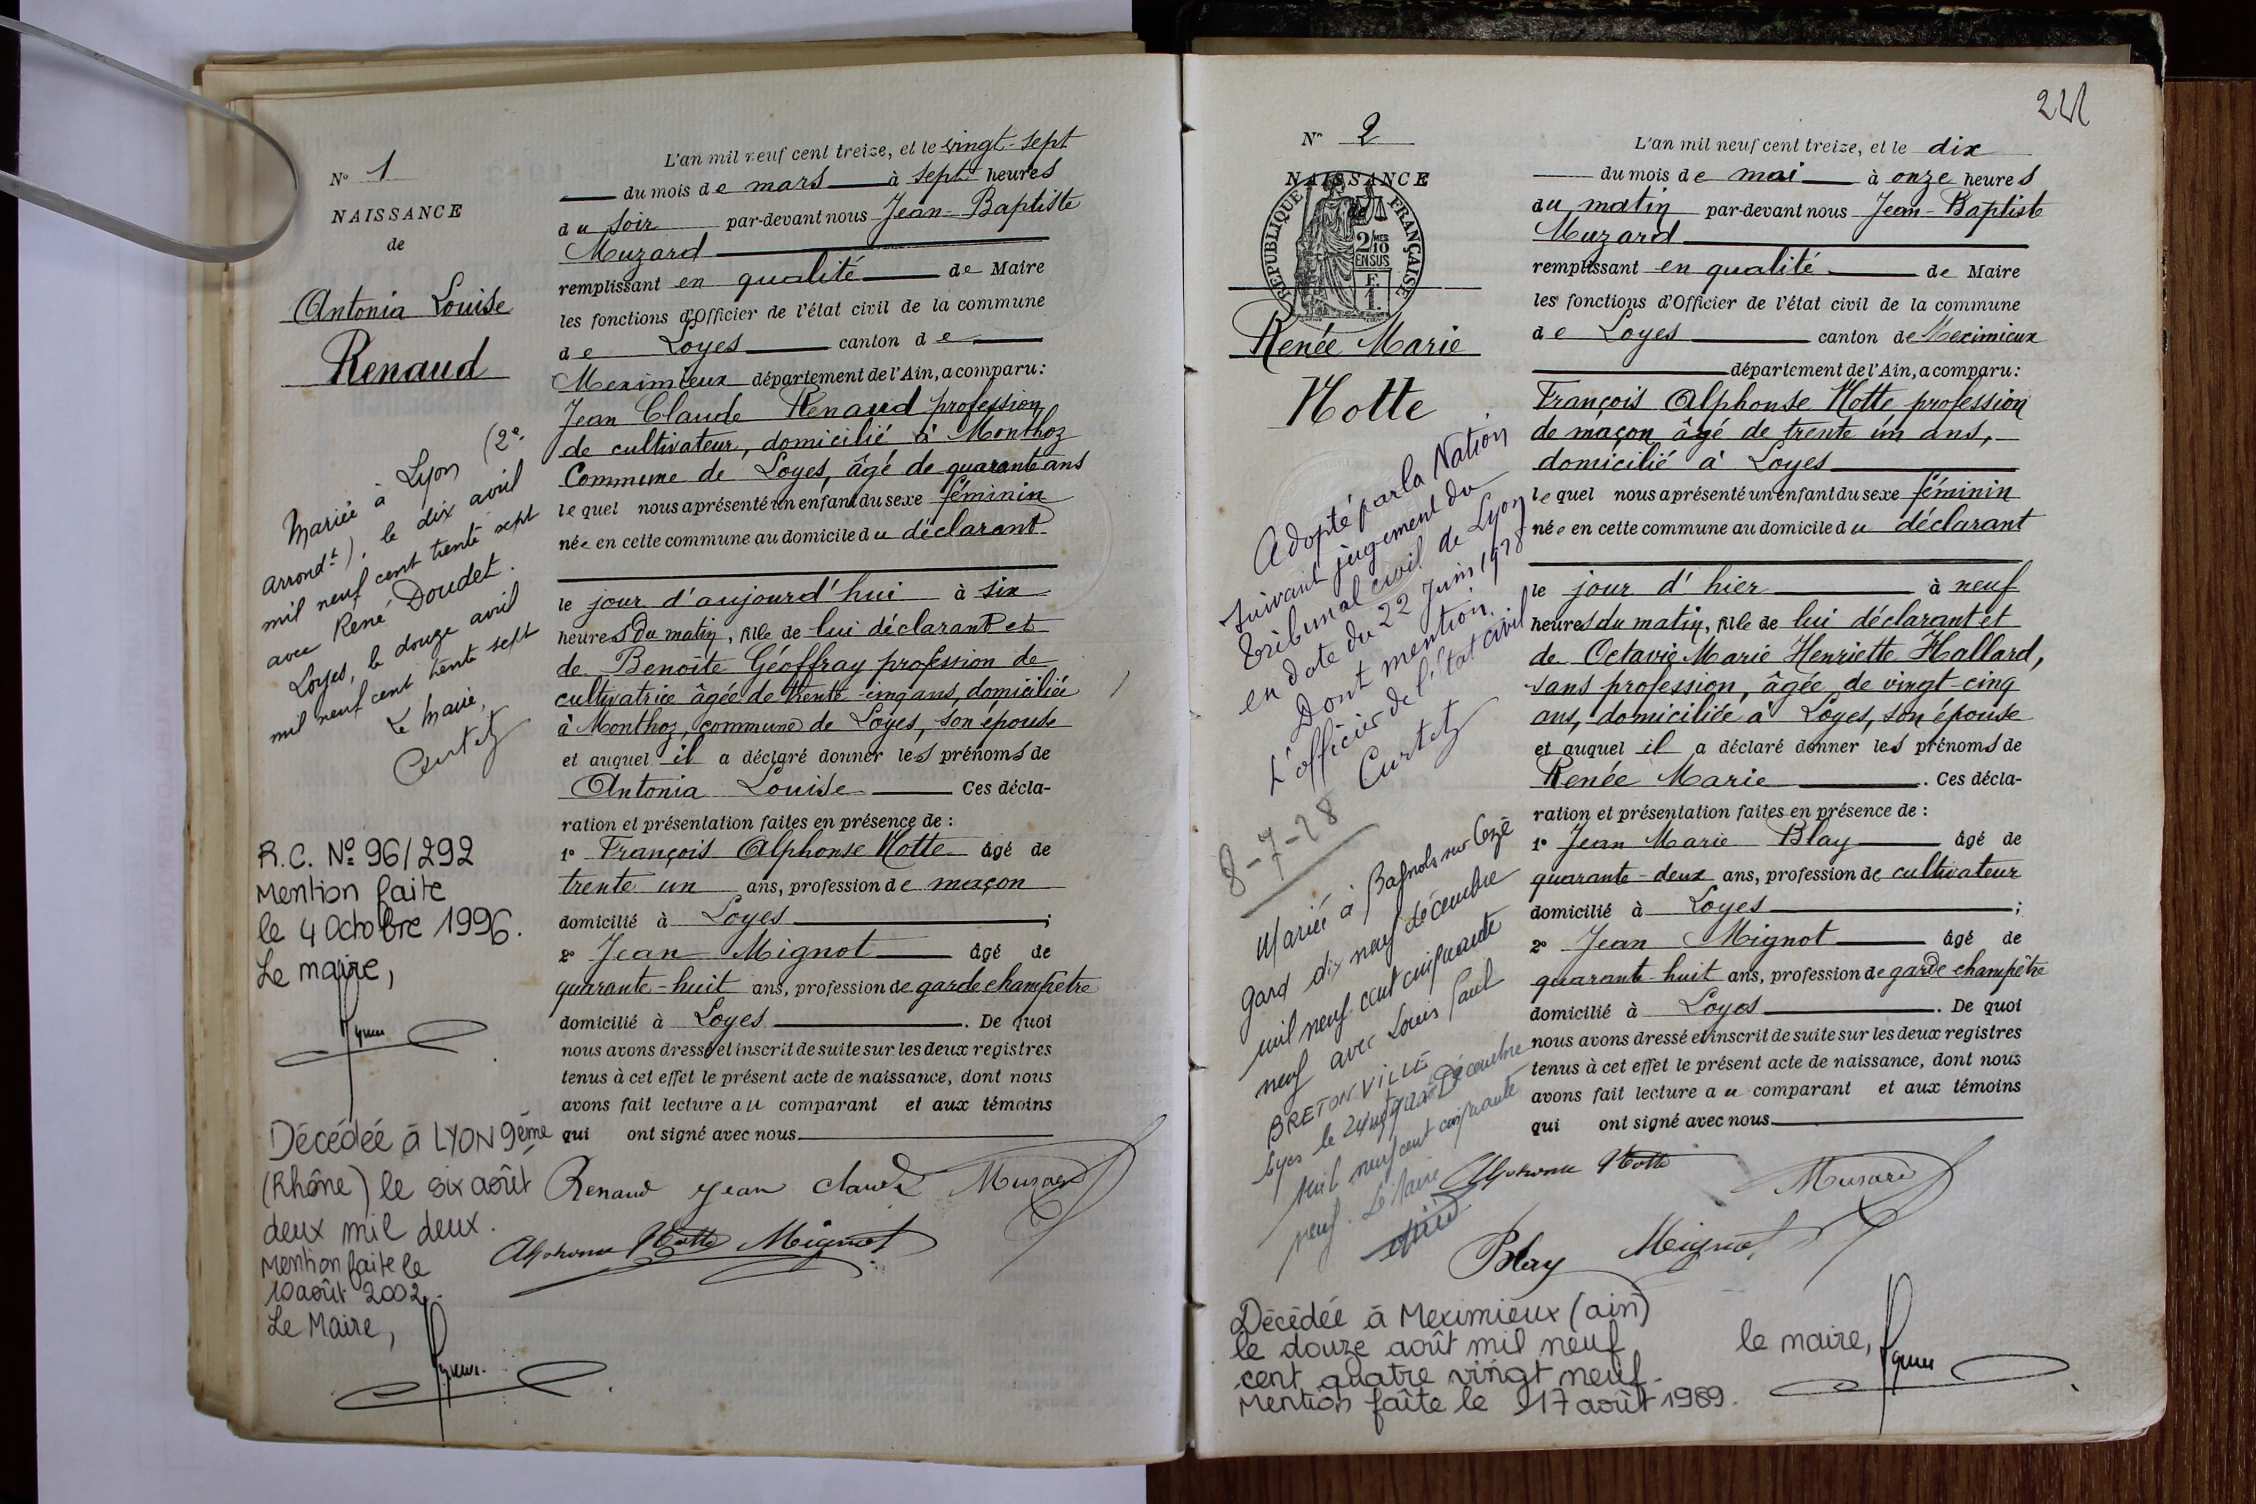 N° 1
NAISSANCE
de
Antonia Louise
Renaud
Mariée à Lyon (2e
arrondt), le dix avril
mil neuf cent trente sept
avec René Doudet.
Loyes, le douze avril
mil neuf cent trente sept
Le Maire,
Curtet
R.C. N° 96/292
Mention faite
le 4 Octobre 1996.
Le maire,
Décédée à LYON 9ème
(Rhône) le six août
deux mil deux.
Mention faite le
10 août 2002.
Le Maire,
L'an mil neuf cent treize, et le vingt-sept
du mois de mars à sept heures
du soir par-devant nous Jean-Baptiste
Muzard
remplissant en qualité de Maire
les fonctions d'Officier de l'état civil de la commune
de Loyes canton de
Meximieux département de l'Ain, a comparu:
Jean Claude Renaud profession
de cultivateur, domicilié à Monthoz
Commune de Loyes, âgé de quarante ans
lequel nous a présenté un enfant du sexe féminin
née en cette commune au domicile du déclarant
le jour d'aujourd'hui à six
heures du matin, fille de lui déclarant et
de Benoîte Géoffray profession de
cultivatrice âgée de trente-cinq ans, domiciliée
à Monthoz, commune de Loyes, son épouse
et auquel il a déclaré donner les prénoms de
Antonia Louise Ces décla-
ration et présentation faites en présence de :
1° François Alphonse Notte âgé de
trente un ans, profession de maçon
domicilié à Loyes ;
2° Jean Mignot âgé de
quarante-huit ans, profession de garde champêtre
domicilié à Loyes. De quoi
nous avons dressé et inscrit de suite sur les deux registres
tenus à cet effet le présent acte de naissance, dont nous
avons fait lecture au comparant et aux témoins
qui ont signé avec nous
Renaud Jean Claude Muzard
Alphonse Notte Mignot
N° 2
NAISSANCE
de
RÉPUBLIQUE FRANÇAISE
2/10 MES
EN SUS
F.
1.
Renée Marie
Notte
Adopté par la Nation
suivant jugement du
tribunal civil de Lyon
en date du 22 Juin 1928
Dont mention.
L'officier de l'état civil
Curtet
8-7-28
Mariée à Bagnols sur Cèze
Gard dix neuf décembre
mil neuf cent cinquante
neuf avec Louis Paul
BRETONVILLE
Loyes le Décembre
mil neuf cent cinquante
neuf. Le Maire
241
L'an mil neuf cent treize, et le dix
du mois de mai à onze heures
du matin par-devant nous Jean-Baptiste
Muzard
remplissant en qualité de Maire
les fonctions d'Officier de l'état civil de la commune
de Loyes canton de Meximieux
département de l'Ain, a comparu:
François Alphonse Notte profession
de maçon âgé de trente un ans,
domicilié à Loyes
lequel nous a présenté un enfant du sexe féminin
née en cette commune au domicile du déclarant
le jour d'hier à neuf
heures du matin, fille de lui déclarant et
de Octavie Marie Henriette Hallard,
sans profession, âgée de vingt-cinq
ans, domiciliée à Loyes, son épouse
et auquel il a déclaré donner les prénoms de
Renée Marie. Ces décla-
ration et présentation faites en présence de :
1° Jean Marie Blay âgé de
quarante-deux ans, profession de cultivateur
domicilié à Loyes ;
2° Jean Mignot âgé de
quarante-huit ans, profession de garde champêtre
domicilié à Loyes. De quoi
nous avons dressé et inscrit de suite sur les deux registres
tenus à cet effet le présent acte de naissance, dont nous
avons fait lecture au comparant et aux témoins
qui ont signé avec nous
Alphonse Notte Muzard
Blay Mignot
Décédée à Meximieux (ain)
le douze août mil neuf
cent quatre vingt neuf.
Mention faîte le 17 août 1989.
le maire,